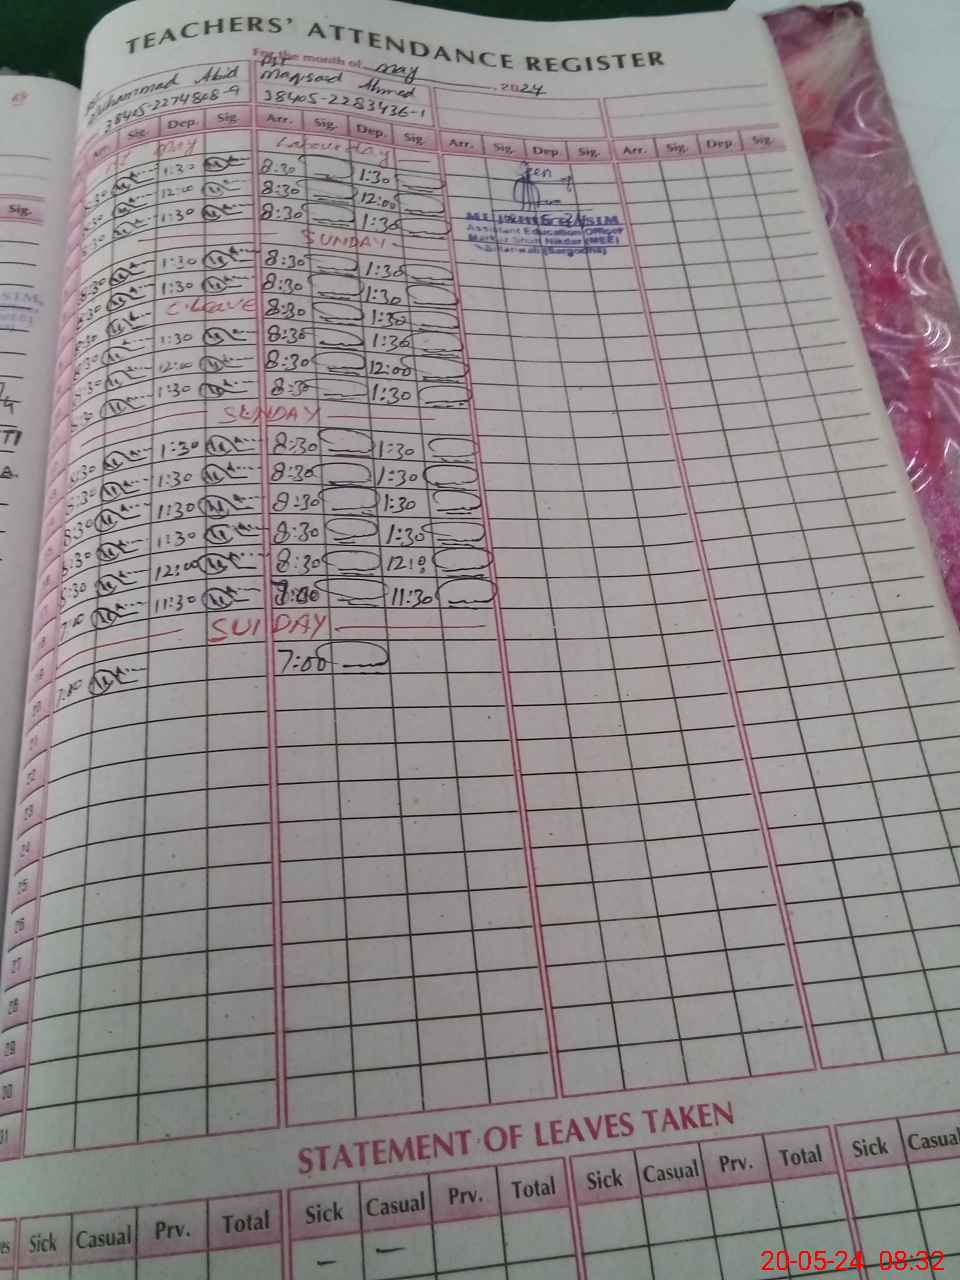 TEACHERS' ATTENDANCE REGISTER
For the month of May, 2024
Muhammad Abid
38405-2274808-9
PST
Maqsood Ahmed
38405-2283436-1
Arr. Sig. Dep. Sig. Arr. Sig. Dep. Sig. Arr. Sig. Dep. Sig. Arr. Sig. Dep. Sig.
May Labour day
1:30 8:30 1:30
12:00 8:30 12:00
1:30 8:30 1:30
SUNDAY
8:30 1:30 8:30 1:30
8:30 1:30 8:30 1:30
8:30 C.Leave 8:30 1:30
8:30 1:30 8:30 1:30
8:30 12:00 8:30 12:00
8:30 1:30 8:30 1:30
SUNDAY
8:30 1:30 8:30 1:30
8:30 1:30 8:30 1:30
8:30 1:30 8:30 1:30
8:30 1:30 8:30 1:30
8:30 12:00 8:30 12:0
7:00 11:30 7:00 11:30
SUNDAY
7:00 7:00
Assistant Education Officer
Sig.
19
20
21
22
23
24
25
26
27
28
29
30
31
STATEMENT OF LEAVES TAKEN
Sick Casual Prv. Total Sick Casual Prv. Total Sick Casual Prv. Total Sick Casual
20-05-24 08:32